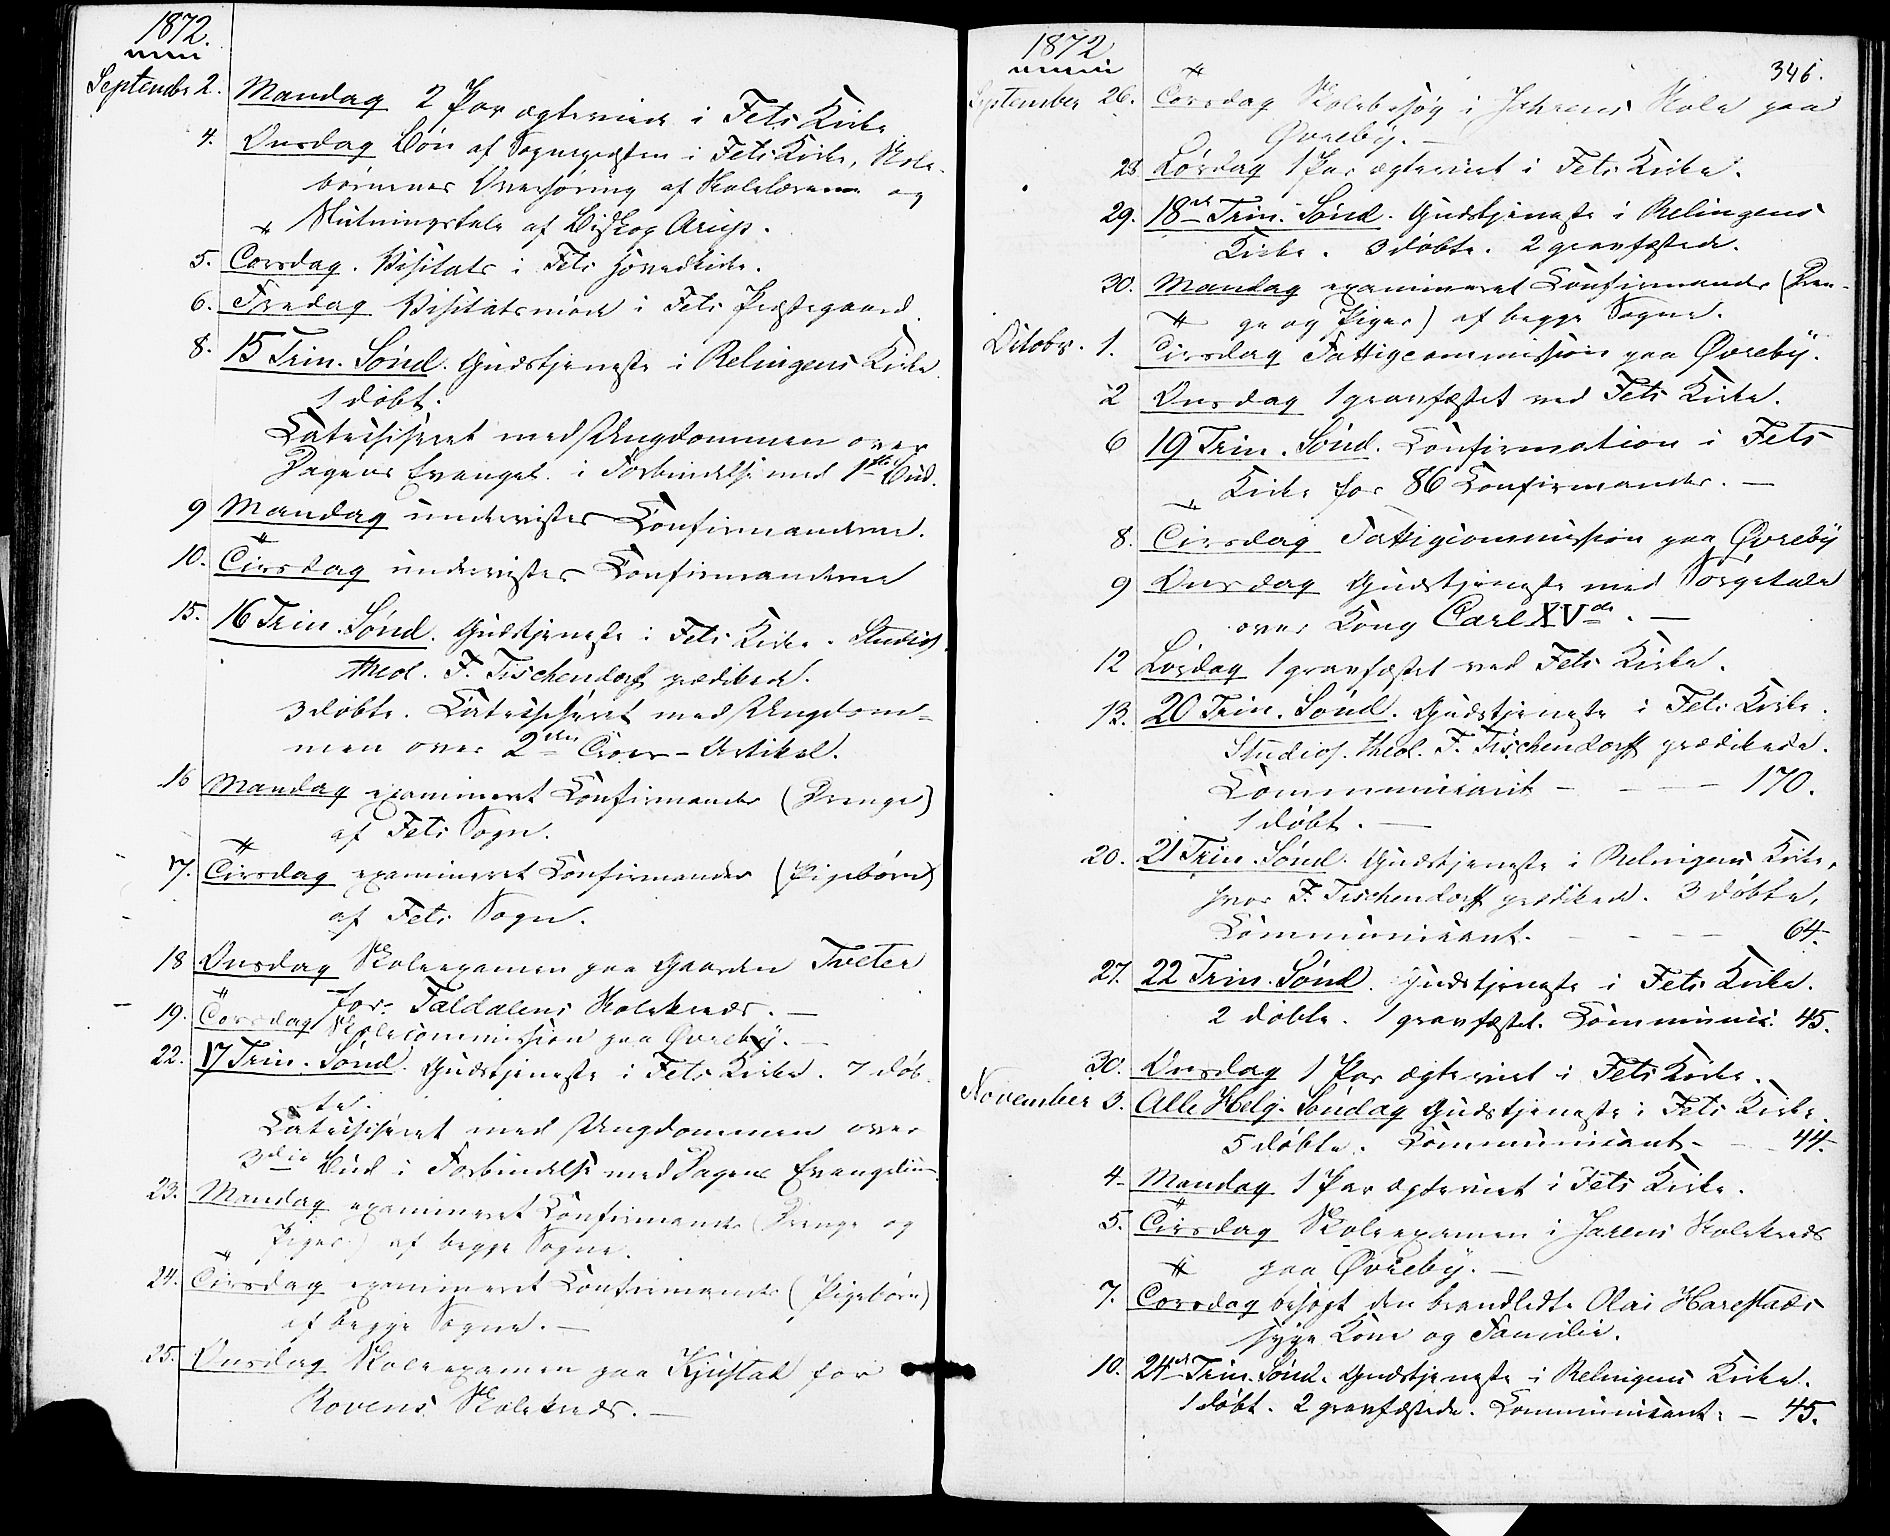 1872.
September 2. Mandag 2 Par ægteviede i Fets Kirke
4. Onsdag Bøn af Sognepræsten i Fets Kirke, Skole-
børnenes Overhøring af Skolelærerne og
Slutningstale af Biskop Arup.
5. Torsdag. Visitats i Fets Hovedkirke.
6. Fredag Visitatsmøde i Fets Præstegaard.
8. 15 Trin. Sönd. Gudstjeneste i Relingens Kirke.
1 døbt.
Catechiseret med Ungdommen over
Dagens Evangel. i Forbindelse med 1ste Bud.
9 Mandag undervistes Confirmanderne.
10. Tirsdag undervistes Confirmanderne
15. 16 Trin. Sönd. Gudstjeneste i Fets Kirke. Studios.
theol. F. Tischendorf prædikede.
3 døbte. Catechiseret med Ungdom-
men over 2den Troes-Artikel.
16 Mandag examineret Confirmander (Drenge)
af Fets Sogn.
17. Tirsdag examineret Confirmander (Pigebørn)
af Fets Sogn.
18 Onsdag Skoleexamen paa Gaarden Tveter
for Faldalens Skolekreds. —
19. Torsdag Skolecommission paa Øvreby. —
22. 17 Trin. Sönd. Gudstjeneste i Fets Kirke. 7 døb-
te.
Catechiseret med Ungdommen over
3die Bud i Forbindelse med Dagens Evangelium
23. Mandag examineret Confirmander (Drenge og
Piger) af begge Sogne.
24. Tirsdag examineret Confirmander (Pigebørn)
af begge Sogne. —
25. Onsdag Skoleexamen paa Kjustad for
Rovens Skolekreds. —
1872
346.
September 26. Torsdag Skolebesøg i Jahrens Skole paa
Øvreby. —
28 Lørdag 1 Par ægteviet i Fets Kirke.
29. 18de Trin. Sönd. Gudstjeneste i Relingens
Kirke. 3 døbte. 2 gravfæstede.
30. Mandag examineret Confirmander (Dren-
ge og Piger) af begge Sogne.
Octobr. 1. Tirsdag Fattigcommission paa Øvreby.
2 Onsdag 1 gravfæstet ved Fets Kirke.
6 19 Trin. Sönd. Confirmation i Fets
Kirke for 86 Confirmander. —
8. Tirsdag Fattigcommission paa Øvreby
9 Onsdag Gudstjeneste med Sørgetale
over Kong Carl XVde. —
12 Lørdag 1 gravfæstet ved Fets Kirke.
13. 20 Trin. Sönd. Gudstjeneste i Fets Kirke.
Studios. theol. F. Tischendorff prædikede.
Communicant - - - - 170.
1 døbt. —
20. 21 Trin. Sönd. Gudstjeneste i Relingens Kirke,
hvor F. Tischendorff prædikede. 3 døbte.
Communicant. - - - - 64.
27. 22 Trin. Sönd. Gudstjeneste i Fets Kirke.
2 døbte. 1 gravfæstet. Communic. 45.
30. Onsdag 1 Par ægteviet i Fets Kirke.
November 3. Alle Helg. Söndag Gudstjeneste i Fets Kirke.
5 døbte. Communicant - - 44.
4 Mandag 1 Par ægteviet i Fets Kirke.
5. Tirsdag Skoleexamen i Jarens Skolekreds
paa Øvreby. —
7. Torsdag besøgt den brandlidte Olai Harestads
syge Kone og Familie.
10. 24de Trin. Sönd. Gudstjeneste i Relingens Kirke.
1 døbt. 2 gravfæstede. Communicant. — 45.